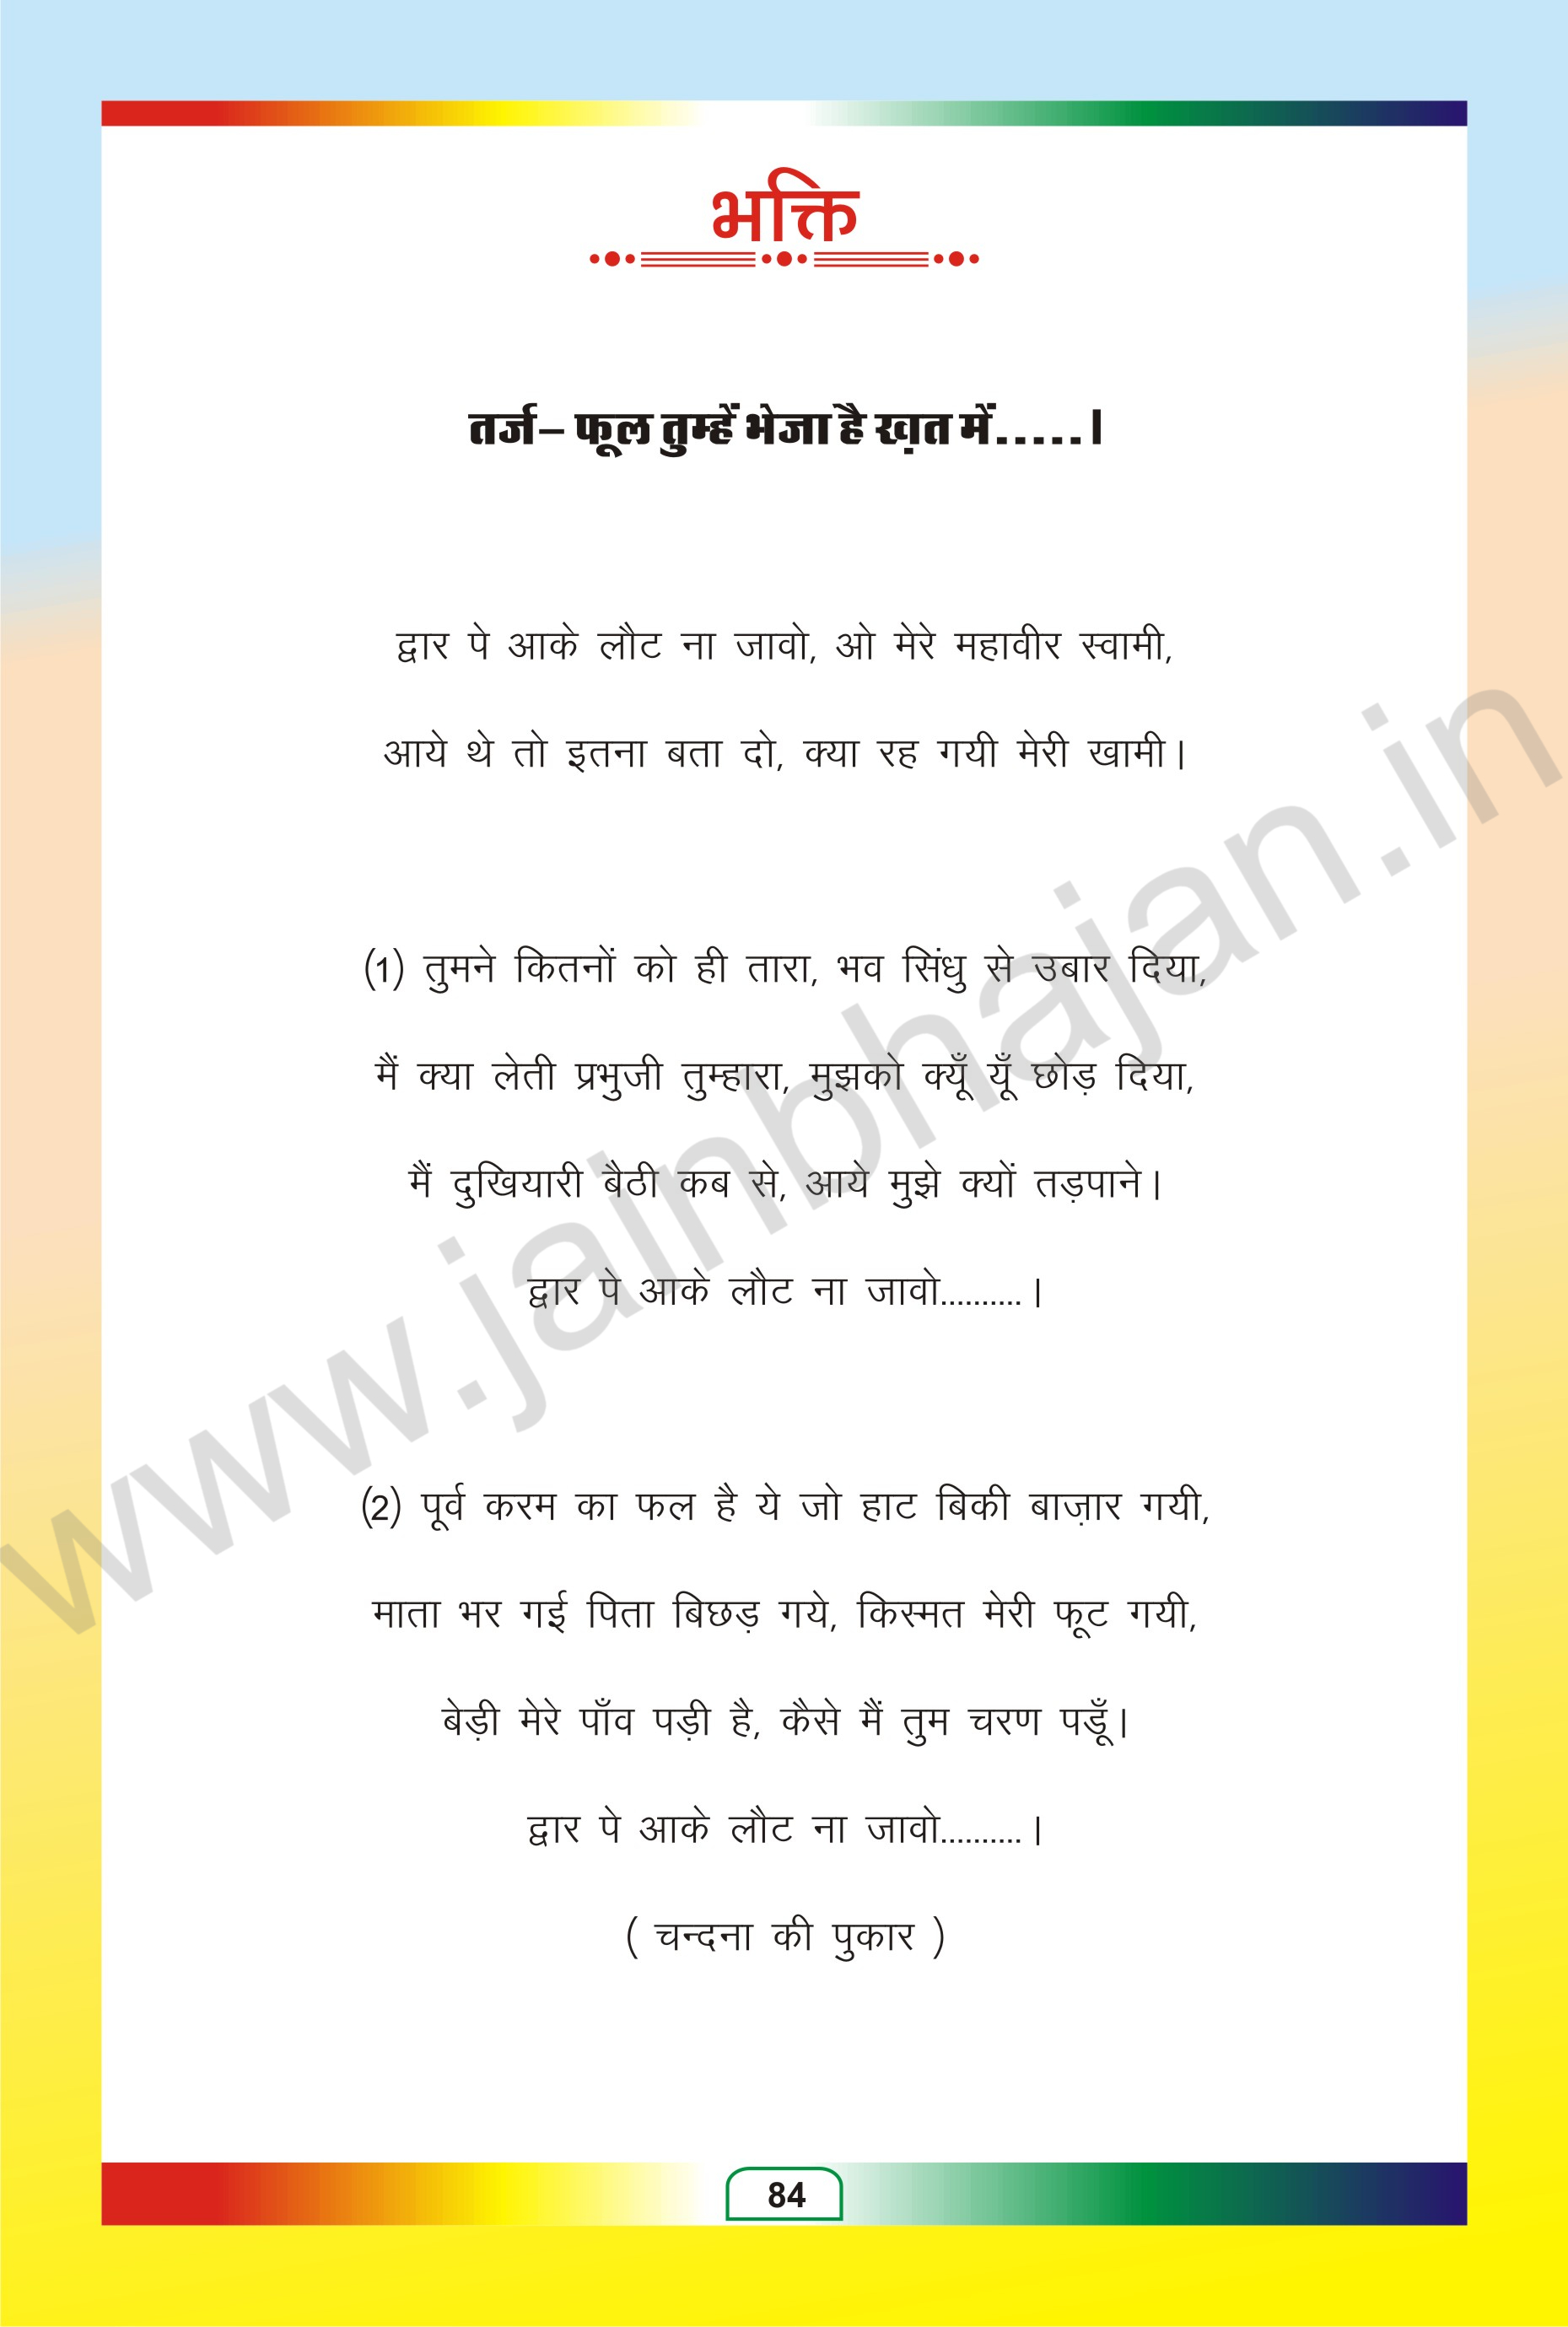 भक्ति
तर्ज– फूल तुम्हें भेजा है ख़त में.....।
द्वार पे आके लौट ना जावो, ओ मेरे महावीर स्वामी,
आये थे तो इतना बता दो, क्या रह गयी मेरी खामी।
(1) तुमने कितनों को ही तारा, भव सिंधु से उबार दिया,
मैं क्या लेती प्रभुजी तुम्हारा, मुझको क्यूँ यूँ छोड़ दिया,
मैं दुखियारी बैठी कब से, आये मुझे क्यों तड़पाने।
द्वार पे आके लौट ना जावो..........।
(2) पूर्व करम का फल है ये जो हाट बिकी बाज़ार गयी,
माता भर गई पिता बिछड़ गये, किस्मत मेरी फूट गयी,
बेड़ी मेरे पाँव पड़ी है, कैसे मैं तुम चरण पडूँ।
द्वार पे आके लौट ना जावो..........।
( चन्दना की पुकार )
84
www.jainbhajan.in